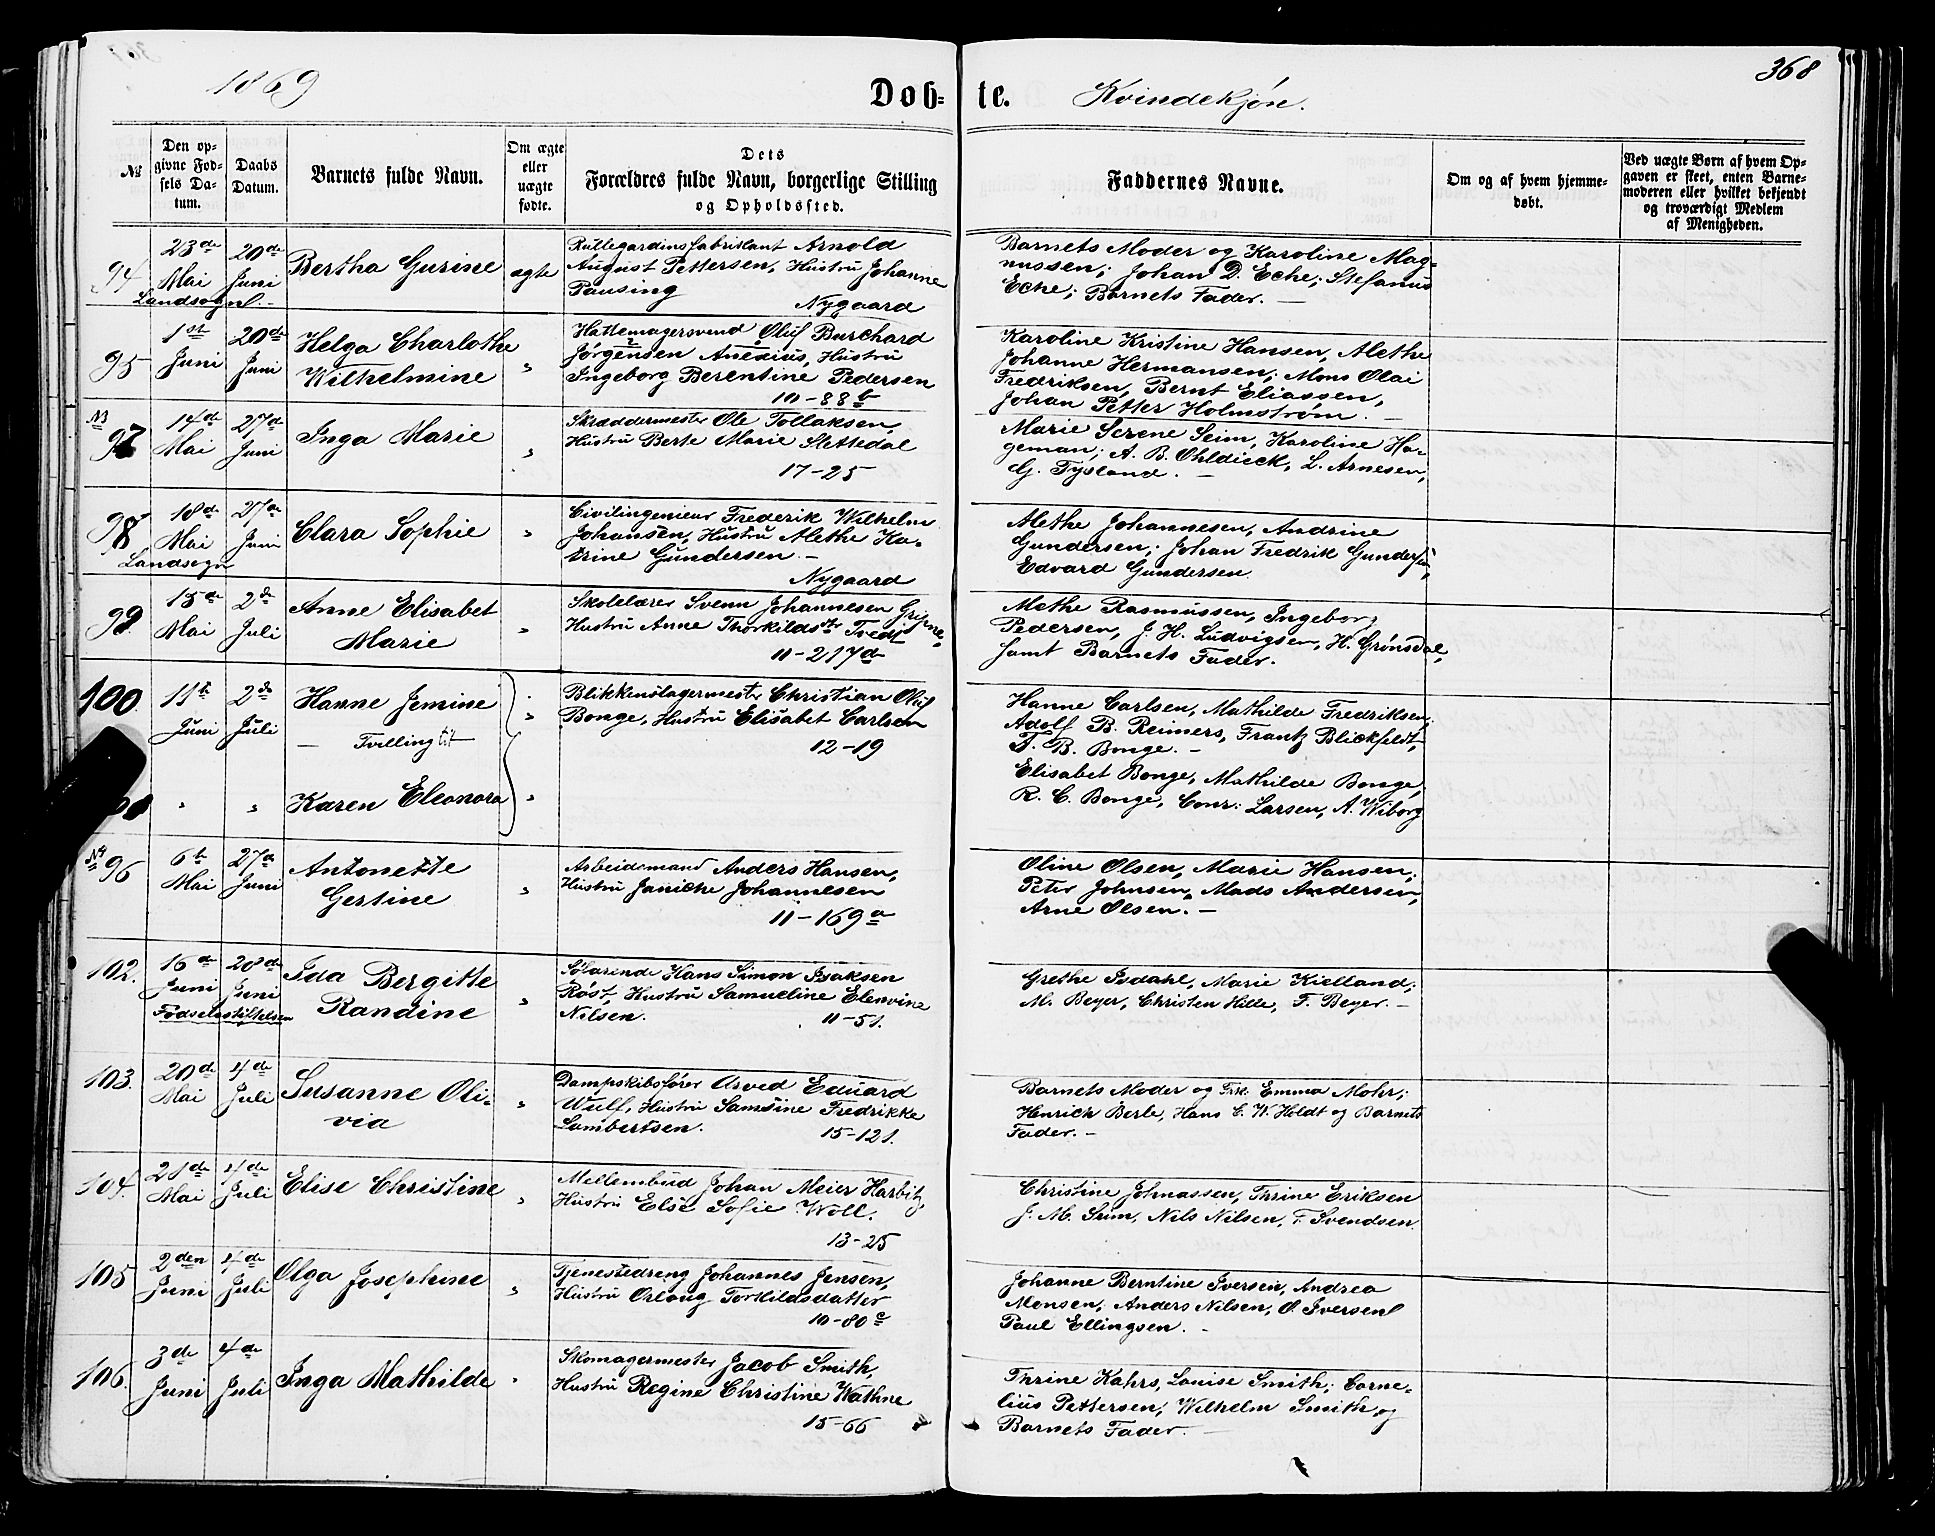 1869
Døb- te. Kvindekjøn.
368
No
Den op-
givne Fød-
sels Da-
tum.
Daabs
Datum.
Barnets fulde Navn.
Om ægte
eller
uægte
fødte.
Dets
Forældres fulde Navn, borgerlige Stilling
og Opholdssted.
Faddernes Navne.
Om og af hvem hjemme-
døbt.
Ved uægte Børn af hvem Op-
gaven er skeet, enten Barne-
moderen eller hvilket bekjendt
og troværdigt Medlem
af Menigheden.
94
Landsogn
23de
Mai
20de
Juni
Bertha Gurine
ægte
Rullegardinsfabrikant Arnold
August Pettersen, Hustru Johanne
Pausing
Nygaard
Barnets Moder og Karoline Mag-
nussen; Johan D. Ecke; Stefanus
Ecke; Barnets Fader. —
95
1st
Juni
20de
Juni
Helga Charlothe
Wilhelmine
"
Hattemagersvend Oluf Burchard
Jørgensen Anexius, Hustru
Ingeborg Berentine Pedersen
10-88b
Karoline Kristine Hansen, Alethe
Johanne Hermansen; Mons Olai
Fredriksen, Bernt Eliassen,
Johan Petter Holmstrøm. —
No
97
14de
Mai
27de
Juni
Inga Marie
"
Skræddermester Ole Tollaksen,
Hustru Berte Marie Slettedal
17-25
Marie Serene Seim, Karoline Ha-
geman; A. B. Ohldieck, L. Arnesen,
G. Tysland. —
98
Landsogn
18de
Mai
27de
Juni
Clara Sophie
"
Civilingenieur Frederik Wilhelm
Johansen, Hustru Alethe Ka-
trine Gundersen —
Nygaard
Alethe Johannesen, Andrine
Gundersen; Johan Fredrik Gundersen,
Edvard Gundersen.
99.
15de
Mai
2de
Juli
Anne Elisabet
Marie
"
Skolelærer Svenn Johannesen Gripne,
Hustru Anne Thorkildsdtr Tvedt
11-217d
Methe Rasmussen, Ingeborg
Pedersen, J. H. Ludvigsen, H. Grønsdal,
samt Barnets Fader.
100.
11te
Juni
2de
Juli
Hanne Jemine
— Tvilling —
"
Blikkenslagermester Christian Oluf
Bonge, Hustru Elisabet Carlsen
12-19
Hanne Carlsen, Mathilde Fredriksen;
Adolf B. Reimers, Frantz Blickfeldt,
T. B. Bonge. —
" "
Karen Eleonora
"
Elisabet Bonge, Mathilde Bonge,
R. C. Bonge, Conr: Larsen, A. Wiborg
No
96
6te
Mai
27de
Juni
Antonette
Gertine
"
Arbeidsmand Anders Hansen,
Hustru Janicke Johannesen
11-169a
Oline Olsen, Marie Hansen;
Peter Johnsen, Mads Andersen,
Arne Olsen. —
102.
16de
Juni
Fødselsstiftelsen
20de
Juni
Ida Bergitte
Randine
"
Søfarende Hans Simon Isaksen
Røst, Hustru Samueline Elenvine
Nilsen.
11-51.
Grethe Isdahl, Marie Kielland;
M. Beyer, Christen Hille, F. Beyer. —
103.
20de
Mai
4de
Juli
Susanne Oli-
via
"
Dampskibsfører Arved Eduard
Wulf, Hustru Samsine Fredrikke
Lambertsen.
15-121.
Barnets Moder og Frk. Emma Mohr;
Henrich Berle, Hans C. W. Holdt og Barnets
Fader. —
104.
21de
Mai
4de
Juli
Elise Christine
"
Mellembud Johan Meier Harbitz,
Hustru Else Sofie Woll.
13-25
Christine Johnassen, Thrine Eriksen
J. M. Seim, Nils Nilsen, T. Svendsen
105
2den
Juni
4de
Juli
Olga Josephine
"
Tjenestedreng Johannes Jensen,
Hustru Orloug Torkildsdatter
10-80c
Johanne Berntine Iversen, Andrea
Monsen; Anders Nilsen, O. Iversen
Paul Ellingsen. —
106.
3de
Juni
4de
Juli
Inga Mathilde
"
Skomagermester Jacob Smith,
Hustru Regine Christine Wathne
15-66
Thrine Kahrs, Louise Smith; Corne-
lius Pettersen, Wilhelm Smith og
Barnets Fader. —